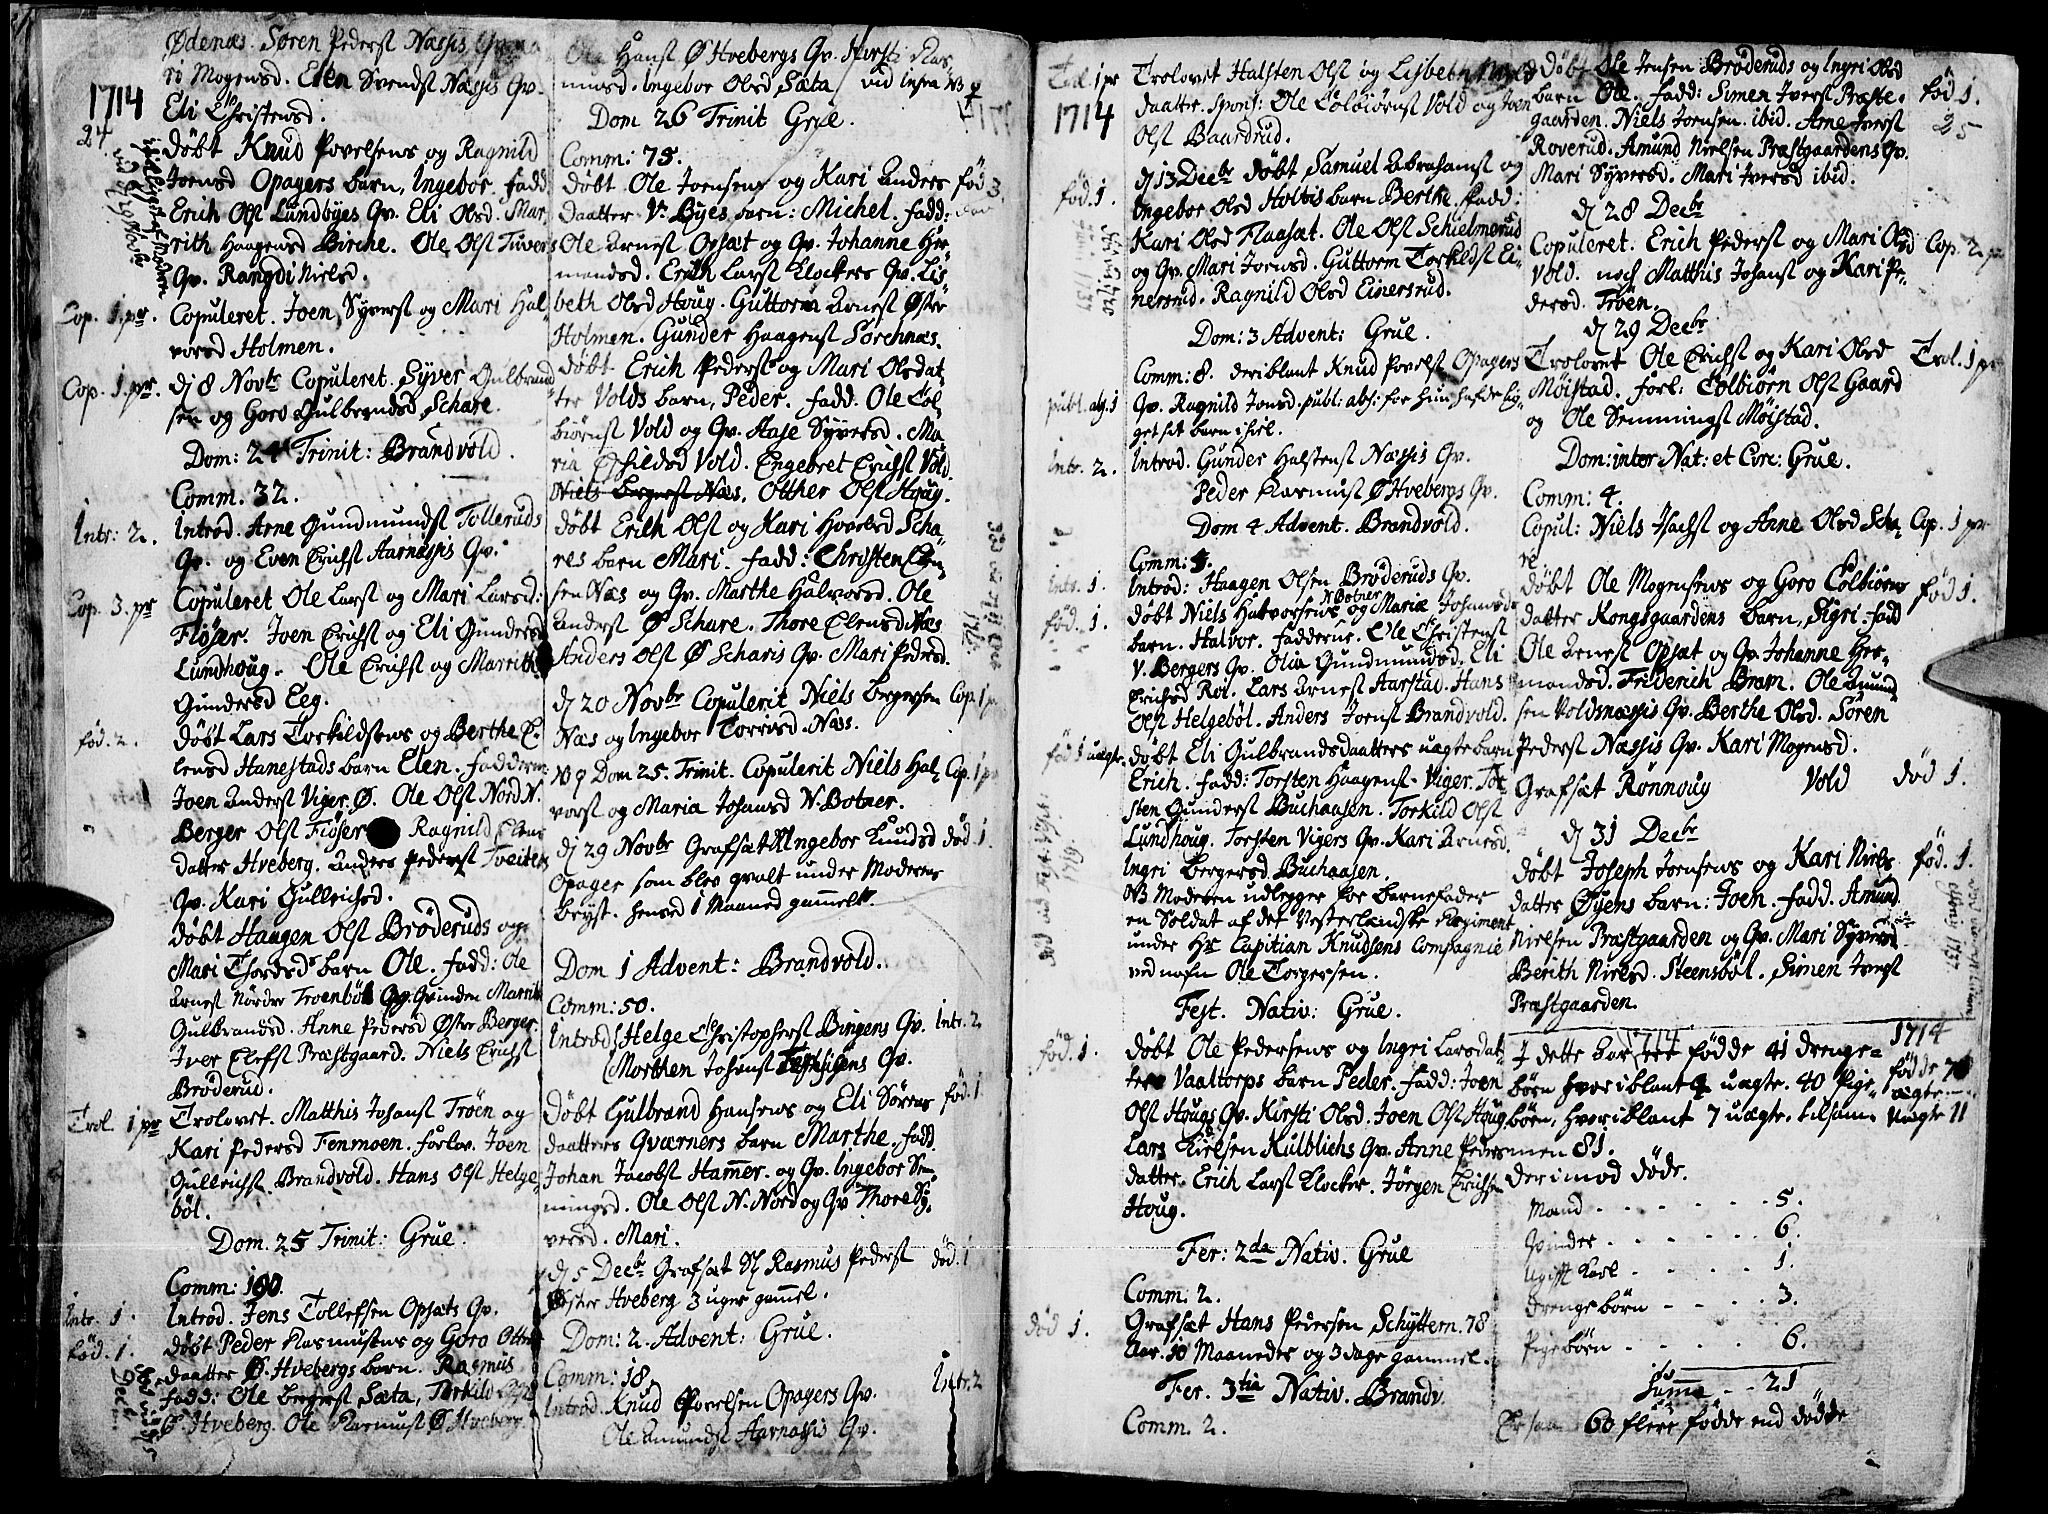 Ødenæs. Søren Pederst Næssis Qv.
ri Mogensd. Elen Svendst Næssis Qv.
1714
Eli Christensd.
24
døbt Knud Povelsens og Ragnild
Joensd Opagers barn, Ingebor. fadd.
Erich Olst Lundbyes Qv. Eli Olsd. Mar
rith Haagensd Birche. Ole Olst Tuvers
Qv. Rangdi Nielsd.
Cop. 1. pr.
Copuleret. Joen Syverst og Mari Hal
vorsd Holmen.
Cop. 1. pr.
dj 8 Novbr Copuleret. Syver Gulbrand
sen og Goro Gulbrandsd Schare.
Dom: 24 Trinit: Brandvold.
Comm. 32.
Intr: 2.
Introd. Arne Gundmundst Tolleruds
Qv. og Even Erichst Aarnæssis Qv.
Cop. 3. pr
Copuleret Ole Larst og Mari Larsd:
Fiöser. Joen Erichst og Eli Gundersd
Lundhoug. Ole Erichst og Marrith
Gundersd Eeg.
föd. 2.
döbt Lars Torkildsens og Berthe E
lensd Hanestads barn Elen. fadderne
Joen Anderst Viger. Ø. Ole Olst Nord N.
Berger Olst Fiöser Ragnild Elens
datter Hveberg. Anders Pederst Tveiters
Qv. Kari Gullichsd.
döbt Haagen Olst Bröderuds og
Mari Thordsd barn Ole. fadd: Ole
Arnest Nördre Troenböl og Qvinden Marrith
Gulbrandsd. Anne Pedersd Øster Berger.
Iver Elefst Præstgaard. Niels Erichst
Bröderud.
Trol. 1 pr
Trolovet. Matthis Johanst Tröen og
Kari Pedersd Tenmoen. forlov. Joen
Gullichst Brandvold. Hans Olst Helge
böl.
Dom. 25 Trinit: Grue.
Comm: 100.
Intr. 1.
Introd. Jens Tollefsen Opsæts Qv.
föd. 1.
döbt Peder Rasmusens og Goro Otters
daatter Ø. Hvebergs barn. Rasmus
fadd: Ole Bergerst Sæta, Torkild
Ø. Hveberg. Ole Rasmust Ø Hveberg.
Ole Hanst Ø Hvebergs Qv. Kirsti Ras
musd. Ingebor Olsd Sæta vid infra NB
Dom 26 Trinit Grue.
Comm: 75.
döbt Ole Joensens og Kari Anders föd 3
daatter V. Byes barn: Michel. fadd:
Ole Arnest Opsæt og Qv. Johanne Her
mandsd. Erich Larst Klockers Qv. Lis
beth Olsd Houg. Guttorm Arnest Øster
Holmen. Gunder Haagenst Sorchnæs.
döbt Erich Pederst og Mari Olsdat
ter Volds barn, Peder. fadd. Ole Col
biörnst Vold og Qv. Aase Syversd. Ma
ria Eskildsd Vold. Engebret Erichst Vold
Niels Bergerst Næs. Otther Olst Houg.
döbt Erich Olst og Kari Hovelsd Scha
res barn Mari. fadd: Christen Elen
sen Næs og Qv. Marthe Halvorsd. Ole
Anderst Ø Schare. Thore Elensd Næs
Anders Olst Ø Scharis Qv. Mari Pedersd.
dj 20 Novbr Copulerit Niels Bergersen Cop. 1 p
Næs og Ingebor Torrisd. Næs.
NB 9 Dom 25. Trinit. Copulerit Niels Hal Cop. 1 pr
vorst og Maria Johansd N. Botner.
dj 29 Novbr Grafsæt Ingebor Knudsd död 1.
Opager som blev qvalt under Moderens
bryst. hensed 1 Maaned gammel.
Dom 1 Advent: Brandvold.
Comm: 50.
Introd Helge Christopherst Bingens Qv. Intr. 2
Morthen Johanst Qv.
Döbt Gulbrand Hansens og Eli Sörens föd. 1
daatters Qværners barn Marthe. fadd.
Johan Jacobst Hammer. og Qv. Ingebor Sem
mingsd. Ole Olst N. Nord og Qv Thore Sy
versd. Mari.
dj 5 Decbr Grafsæt Rasmus Pederst död. 1
Øster Hveberg 3 uger gammel.
Dom: 2. Advent: Grue.
Comm: 18.
Introd. Knud Povelsen Opagers Qv. Intr. 2
Ole Amundst Aarnæssis Qv.
Trol 1 pr
Trolovet Halsten Olst og Lisbeth
daatter. Spons: Ole Colbiörnst Vold og Joen
1714
Olst Baardrud.
föd. 1.
dj 13 Decbr döbt Samuel Abrahamst og
Ingebor Olsd Holtis barn Berthe. fadd:
Kari Olsd Flaasæt. Ole Olst Schielmerud
og Qv. Mari Joensd. Guttorm Torkildst Ei
nersrud. Ragnild Olsd Einersrud.
Dom: 3 Advent: Grue.
Comm: 8. deriblant Knud Povelst Opagers
publ. abs. 1
Qv. Ragnild Jonsd. publ: abs: for hun hafde lig
get sit barn ihiel.
Intr. 2.
Introd. Gunder Halstenst Næssis Qv.
Peder Rasmust Ø Hvebergs Qv.
Dom 4 Advent. Brandvold.
Comm: 4.
Intr. 1.
Introd: Haagen Olsen Bröderuds Qv.
föd. 1.
döbt Niels Halvorsens N Botner og Mariæ Johansd
barn. Halvor. fadderne. Ole Christenst
V. Bergers Qv. Olia Gundmundsd. Eli
Erichsd Rot. Lars Arnest Aarstad. Hans
Olst Helgeböl. Anders Joenst Brandvold.
föd 1 uægte
döbt Eli Gulbrandsdaatters uægte barn
Erich. fadd: Torsten Haagenst. Viger. Tor
sten Gunderst Buchaasen. Torkild Olst
Lundhoug. Torsten Vigers Qv. Kari Arnesd.
Ingri Bergersd Buchaasen.
NB Moderen udlegger for barnefader
en Soldat af det Vesterlendske Regiment
under Hr Capitian Knudsens Compagnie
ved nafn Ole Torgersen.
Fest. Nativ: Grue.
föd. 1.
döbt Ole Pedersens og Ingri Larsdat
ters Vaaltorps barn Peder. fadd: Joen
Olst Hougs Qv. Kirsti Olsd. Joen Olst Houg
Lars Kielsen Kulblichs Qv. Anne Peders
datter. Erich Larst Klocker. Jörgen Erichsen
Houg.
Fer: 2da Nativ. Grue
Comm. 2.
död 1.
Grafsæt Hans Pedersen Schyttern. 78
Aar. 10 Maaneder og 3 dage gammel.
Fer. 3tia Nativ. Brandv.
Comm. 2.
Döbt Ole Jensen Bröderuds og Ingri Olsd
barn Ole. fadd: Simen Iverst Præste
föd 1.
gaarden. Niels Jonsen. ibid. Arne Iverst
25
Roverud. Amund Nielsen Præstgaardens Qv.
Mari Syversd. Mari Iversd ibid.
dj 28 Decbr
Copuleret. Erich Pederst og Mari Olsd Cop. 2 pr
Vold. noch Matthis Johanst og Kari Pe
dersd. Tröen.
dj 29 Decbr
Trolovet Ole Erichst og Kari Olsd Trol. 1 pr
Möistad. forl: Colbiörn Olst Gaard
og Ole Semmingst Möistad.
Dom: inter Nat: et Circ: Grue.
Comm: 4.
Copul: Niels Isachst og Anne Olsd Scha Cop. 1 pr
re
döbt Ole Mogensens og Goro Colbiörns föd 1.
datter Kongsgaardens barn, Sigri. fadd
Ole Arnest Opsæt og Qv. Johanne Her
mandsd. Friderich Bram. Ole Amund
sen Voldsnæssis Qv. Berthe Olsd. Sören
Pederst Næssis Qv. Kari Mogensd.
Grafsæt Rönnoug Vold död 1.
dj 31 Decbr
döbt Joseph Joensens og Kari Niels föd. 1.
datter Öyens barn: Joen. fadd. Amund
Nielsen Præstgaarden og Qv. Mari Syversd
Berith Nielsd. Steensböl. Simen Iverst
Præstgaarden.
1714 1714
I dette Aar ere födde 41 drenge=
födde
börn hvoriblant 4 uægte. 40 Pige
ægte
börn, hvoriblant 7 uægte. tilsam=
Uægte 11
men 81.
derimod döde.
Mænd - - - - - 5.
Qvinder - - - - - 6.
Ugift Karl - - - - 1.
drenge börn - - - - 3.
Pige börn - - - - - 6.
Summa - - 21
Er saa 60 flere födde end dödde